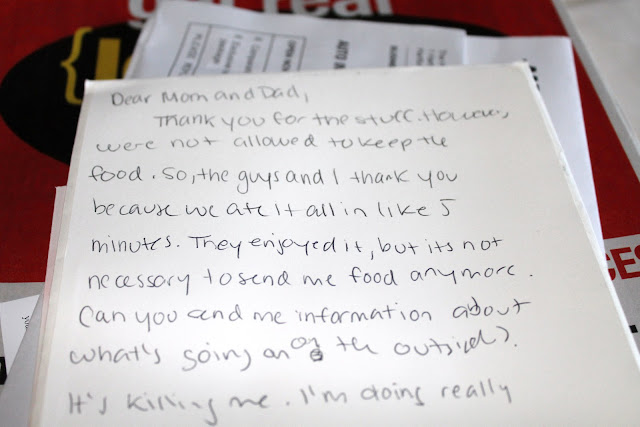 get real
{
AUTO
OPEN NOW
Dear Mom and Dad,
Thank you for the stuff. However,
were not allowed to keep the
food. So, the guys and I thank you
because we ate it all in like 5
minutes. They enjoyed it, but its not
necessary to send me food anymore.
Can you send me information about
what's going on on the outside?.
It's killing me. I'm doing really
CES